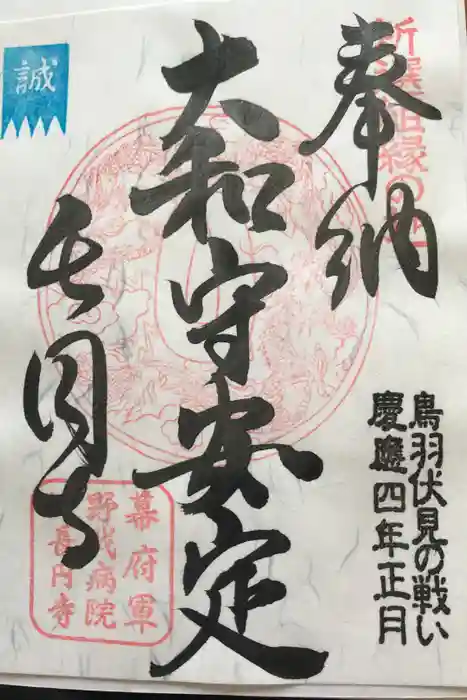 奉納
新選組縁の地
大和守安定
誠
長円寺
鳥羽伏見の戦い
慶應四年正月
幕府軍
野戦病院
長円寺